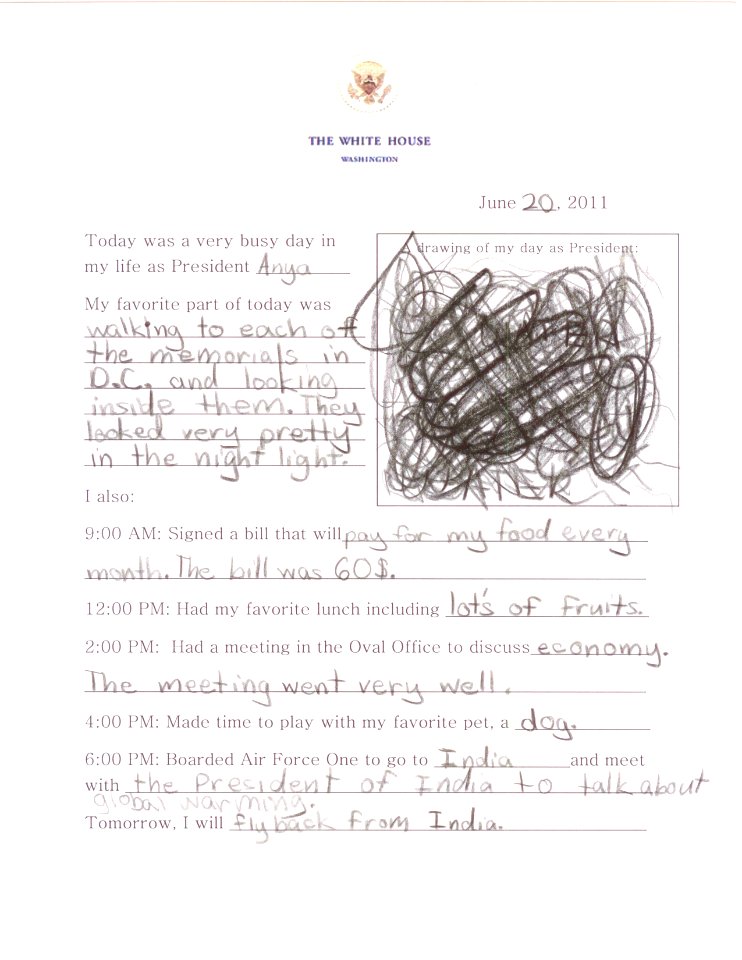 THE WHITE HOUSE
WASHINGTON
June 20, 2011
Today was a very busy day in
my life as President Anya
My favorite part of today was
walking to each off
the memorials in
D.C. and looking
inside them. They
looked very pretty
in the night light.
A drawing of my day as President:
I also:
9:00 AM: Signed a bill that will pay for my food every
month. The bill was 60$.
12:00 PM: Had my favorite lunch including lot's of fruits.
2:00 PM: Had a meeting in the Oval Office to discuss economy.
The meeting went very well.
4:00 PM: Made time to play with my favorite pet, a dog.
6:00 PM: Boarded Air Force One to go to India and meet
with the President of India to talk about
global warming.
Tomorrow, I will fly back from India.